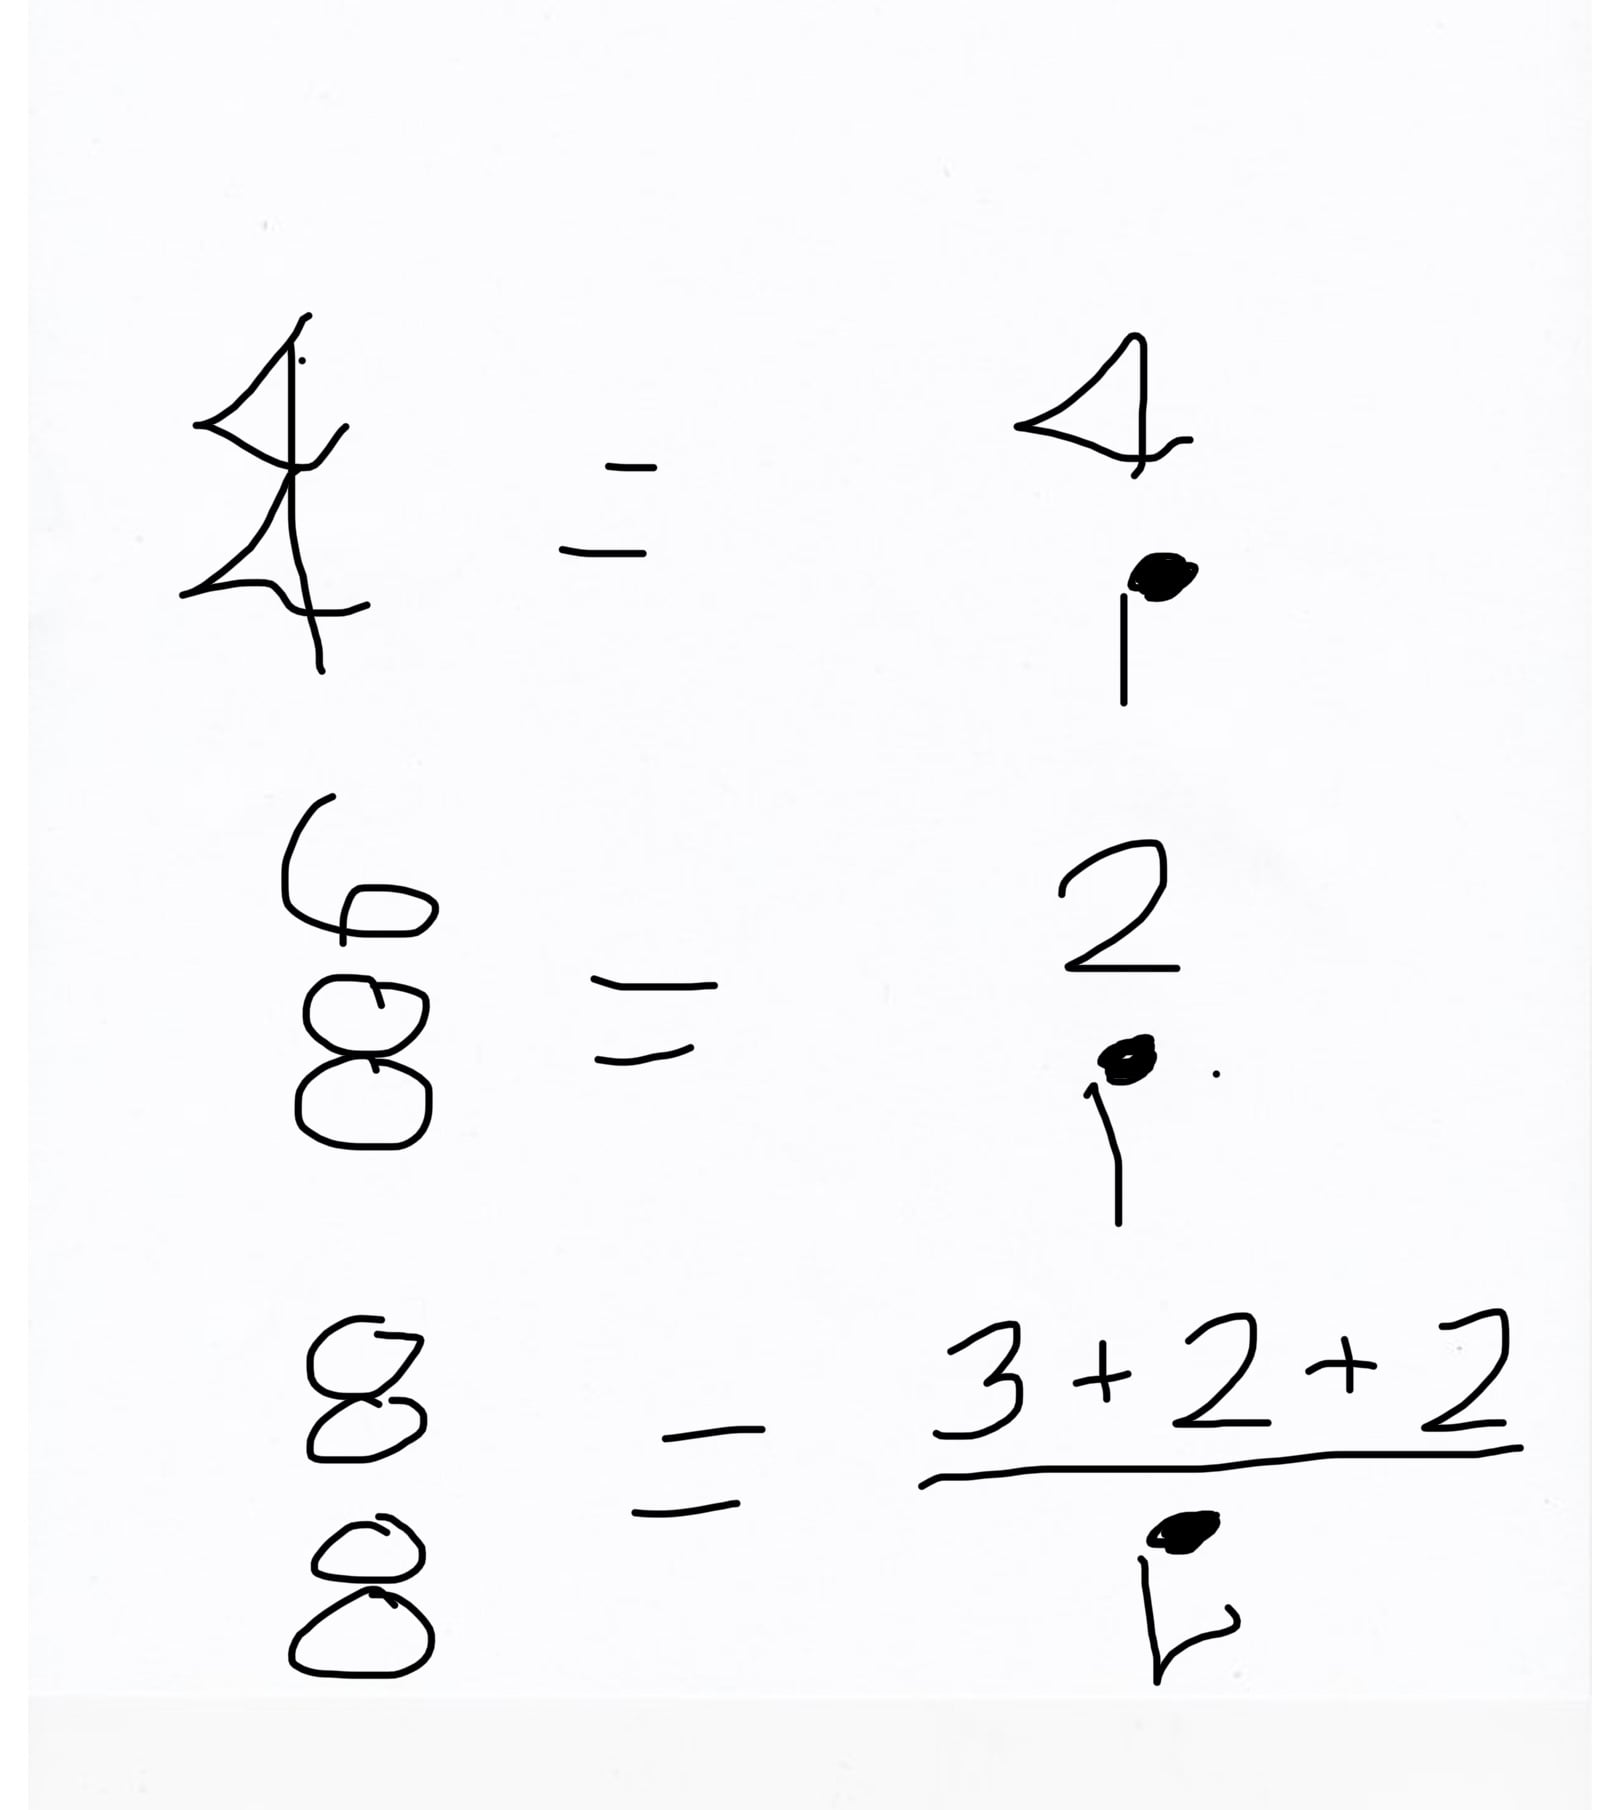 4 = 4
4
6 = 2
8
8 = 3 + 2 + 2
8